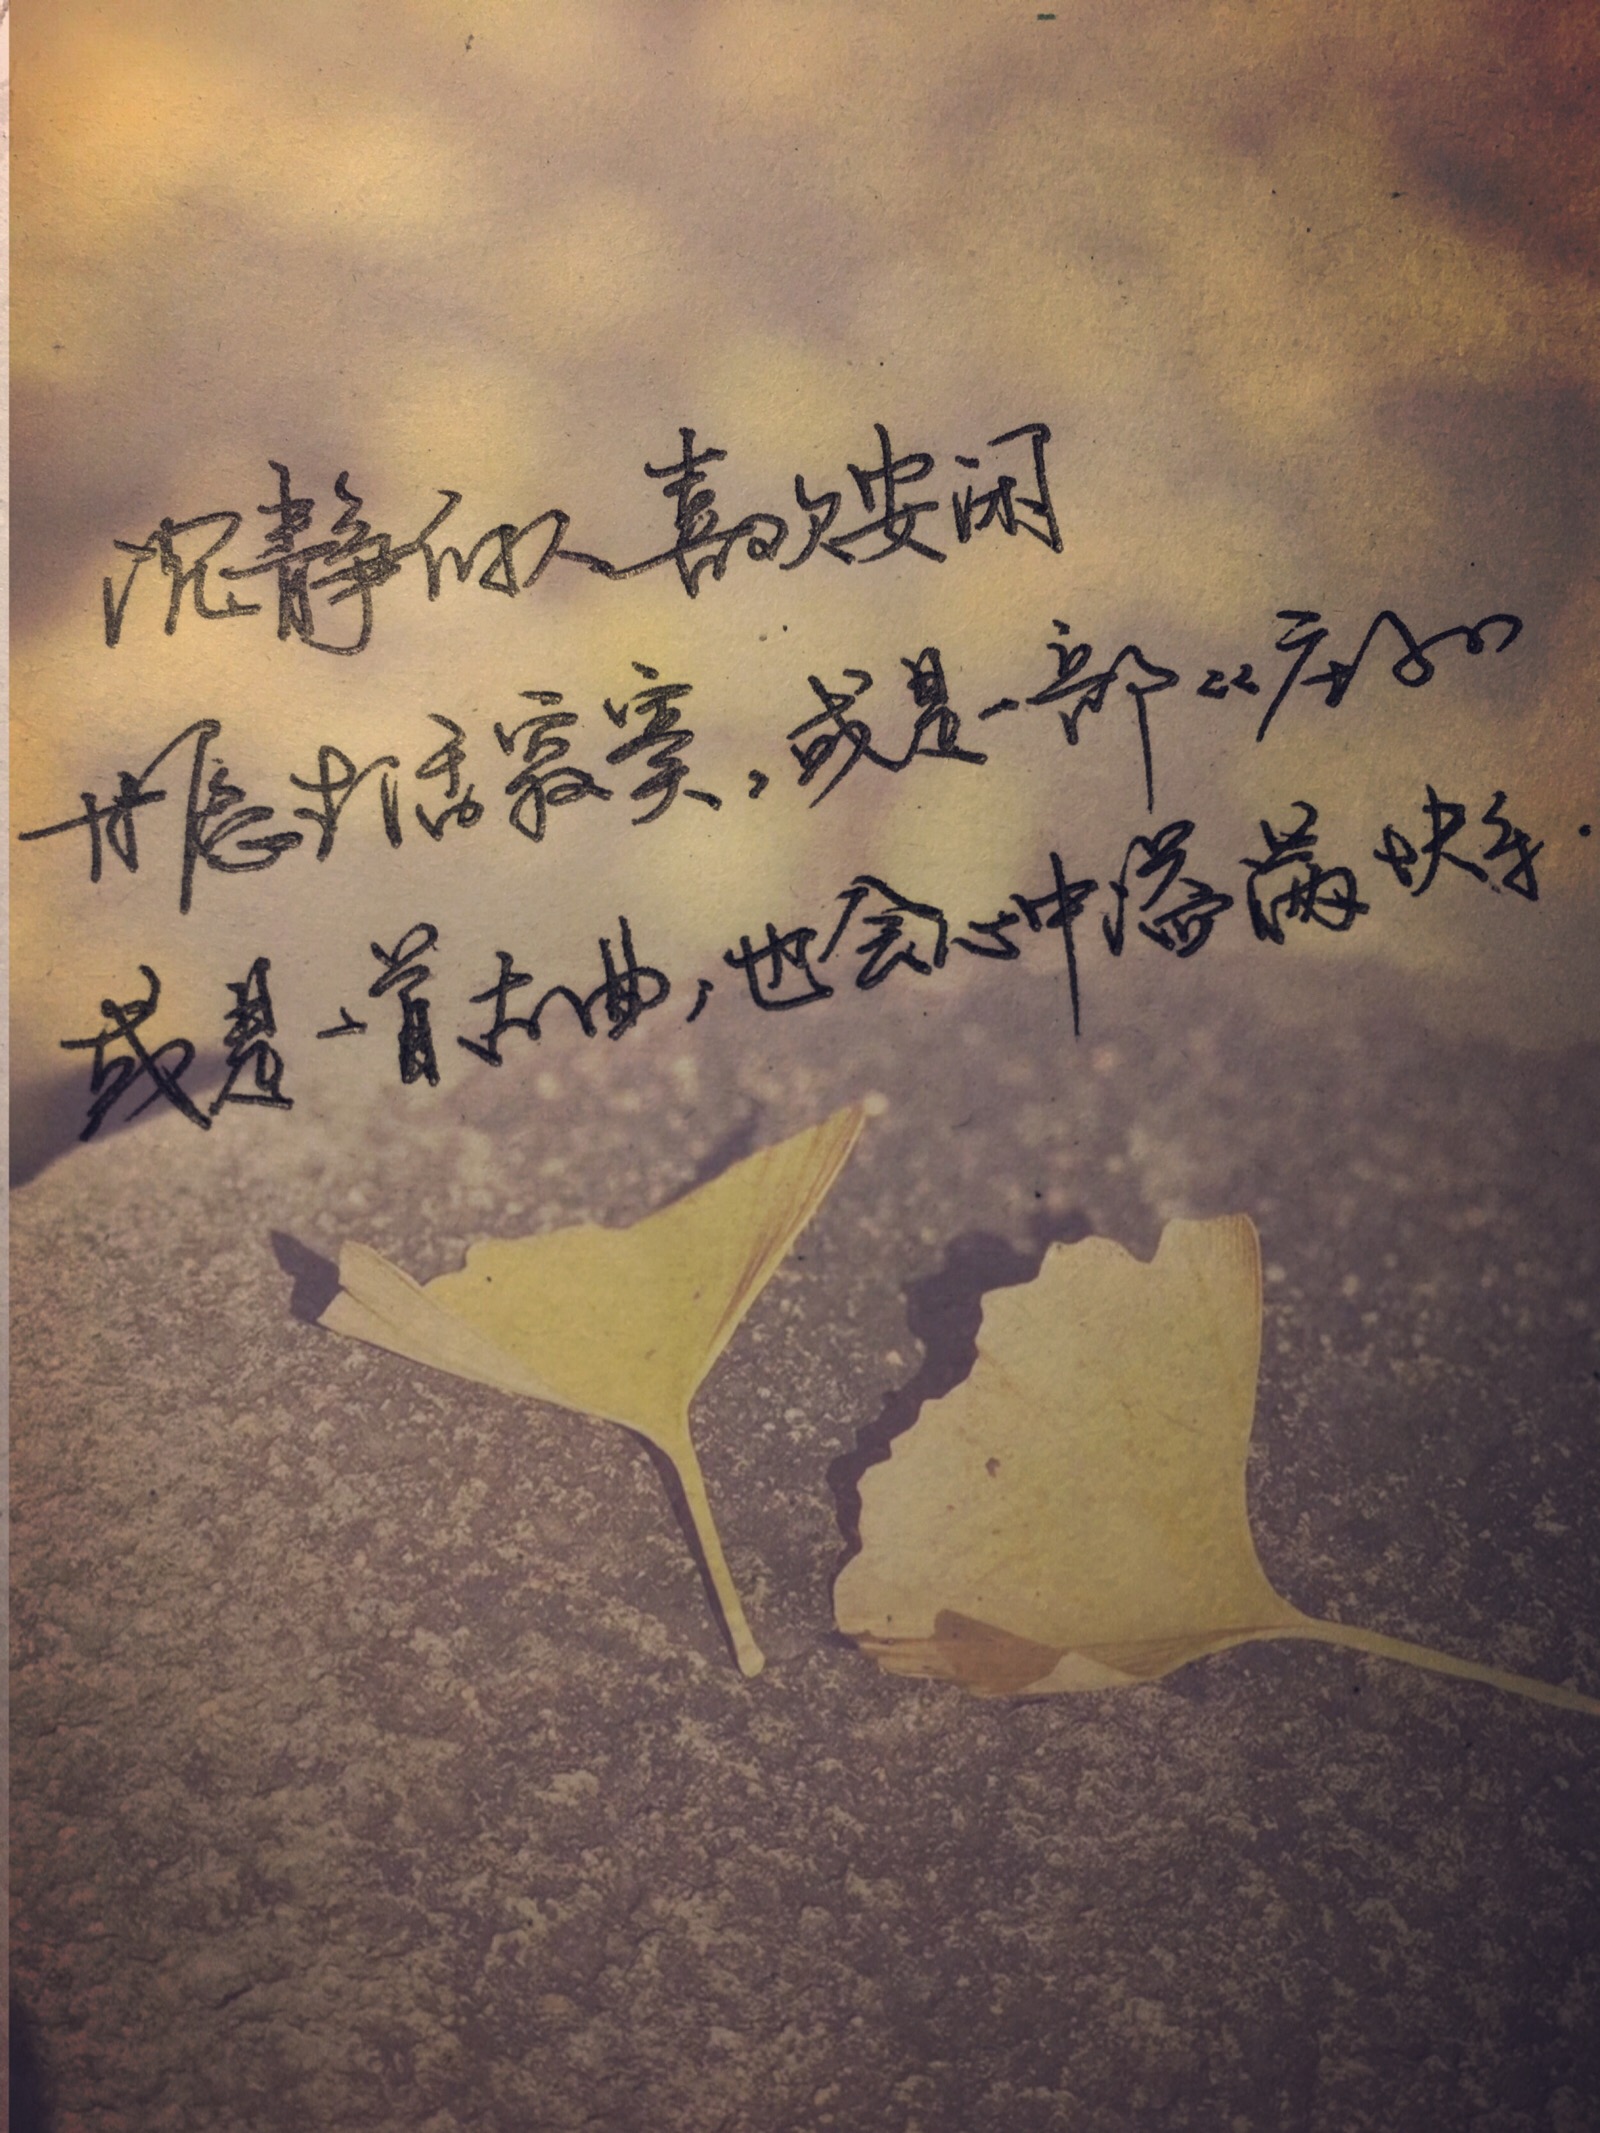 沉静的人喜欢安闲
甘愿生活寂寞,或是一部《庄子》
或是一首古曲,也会心中溢满快乐.